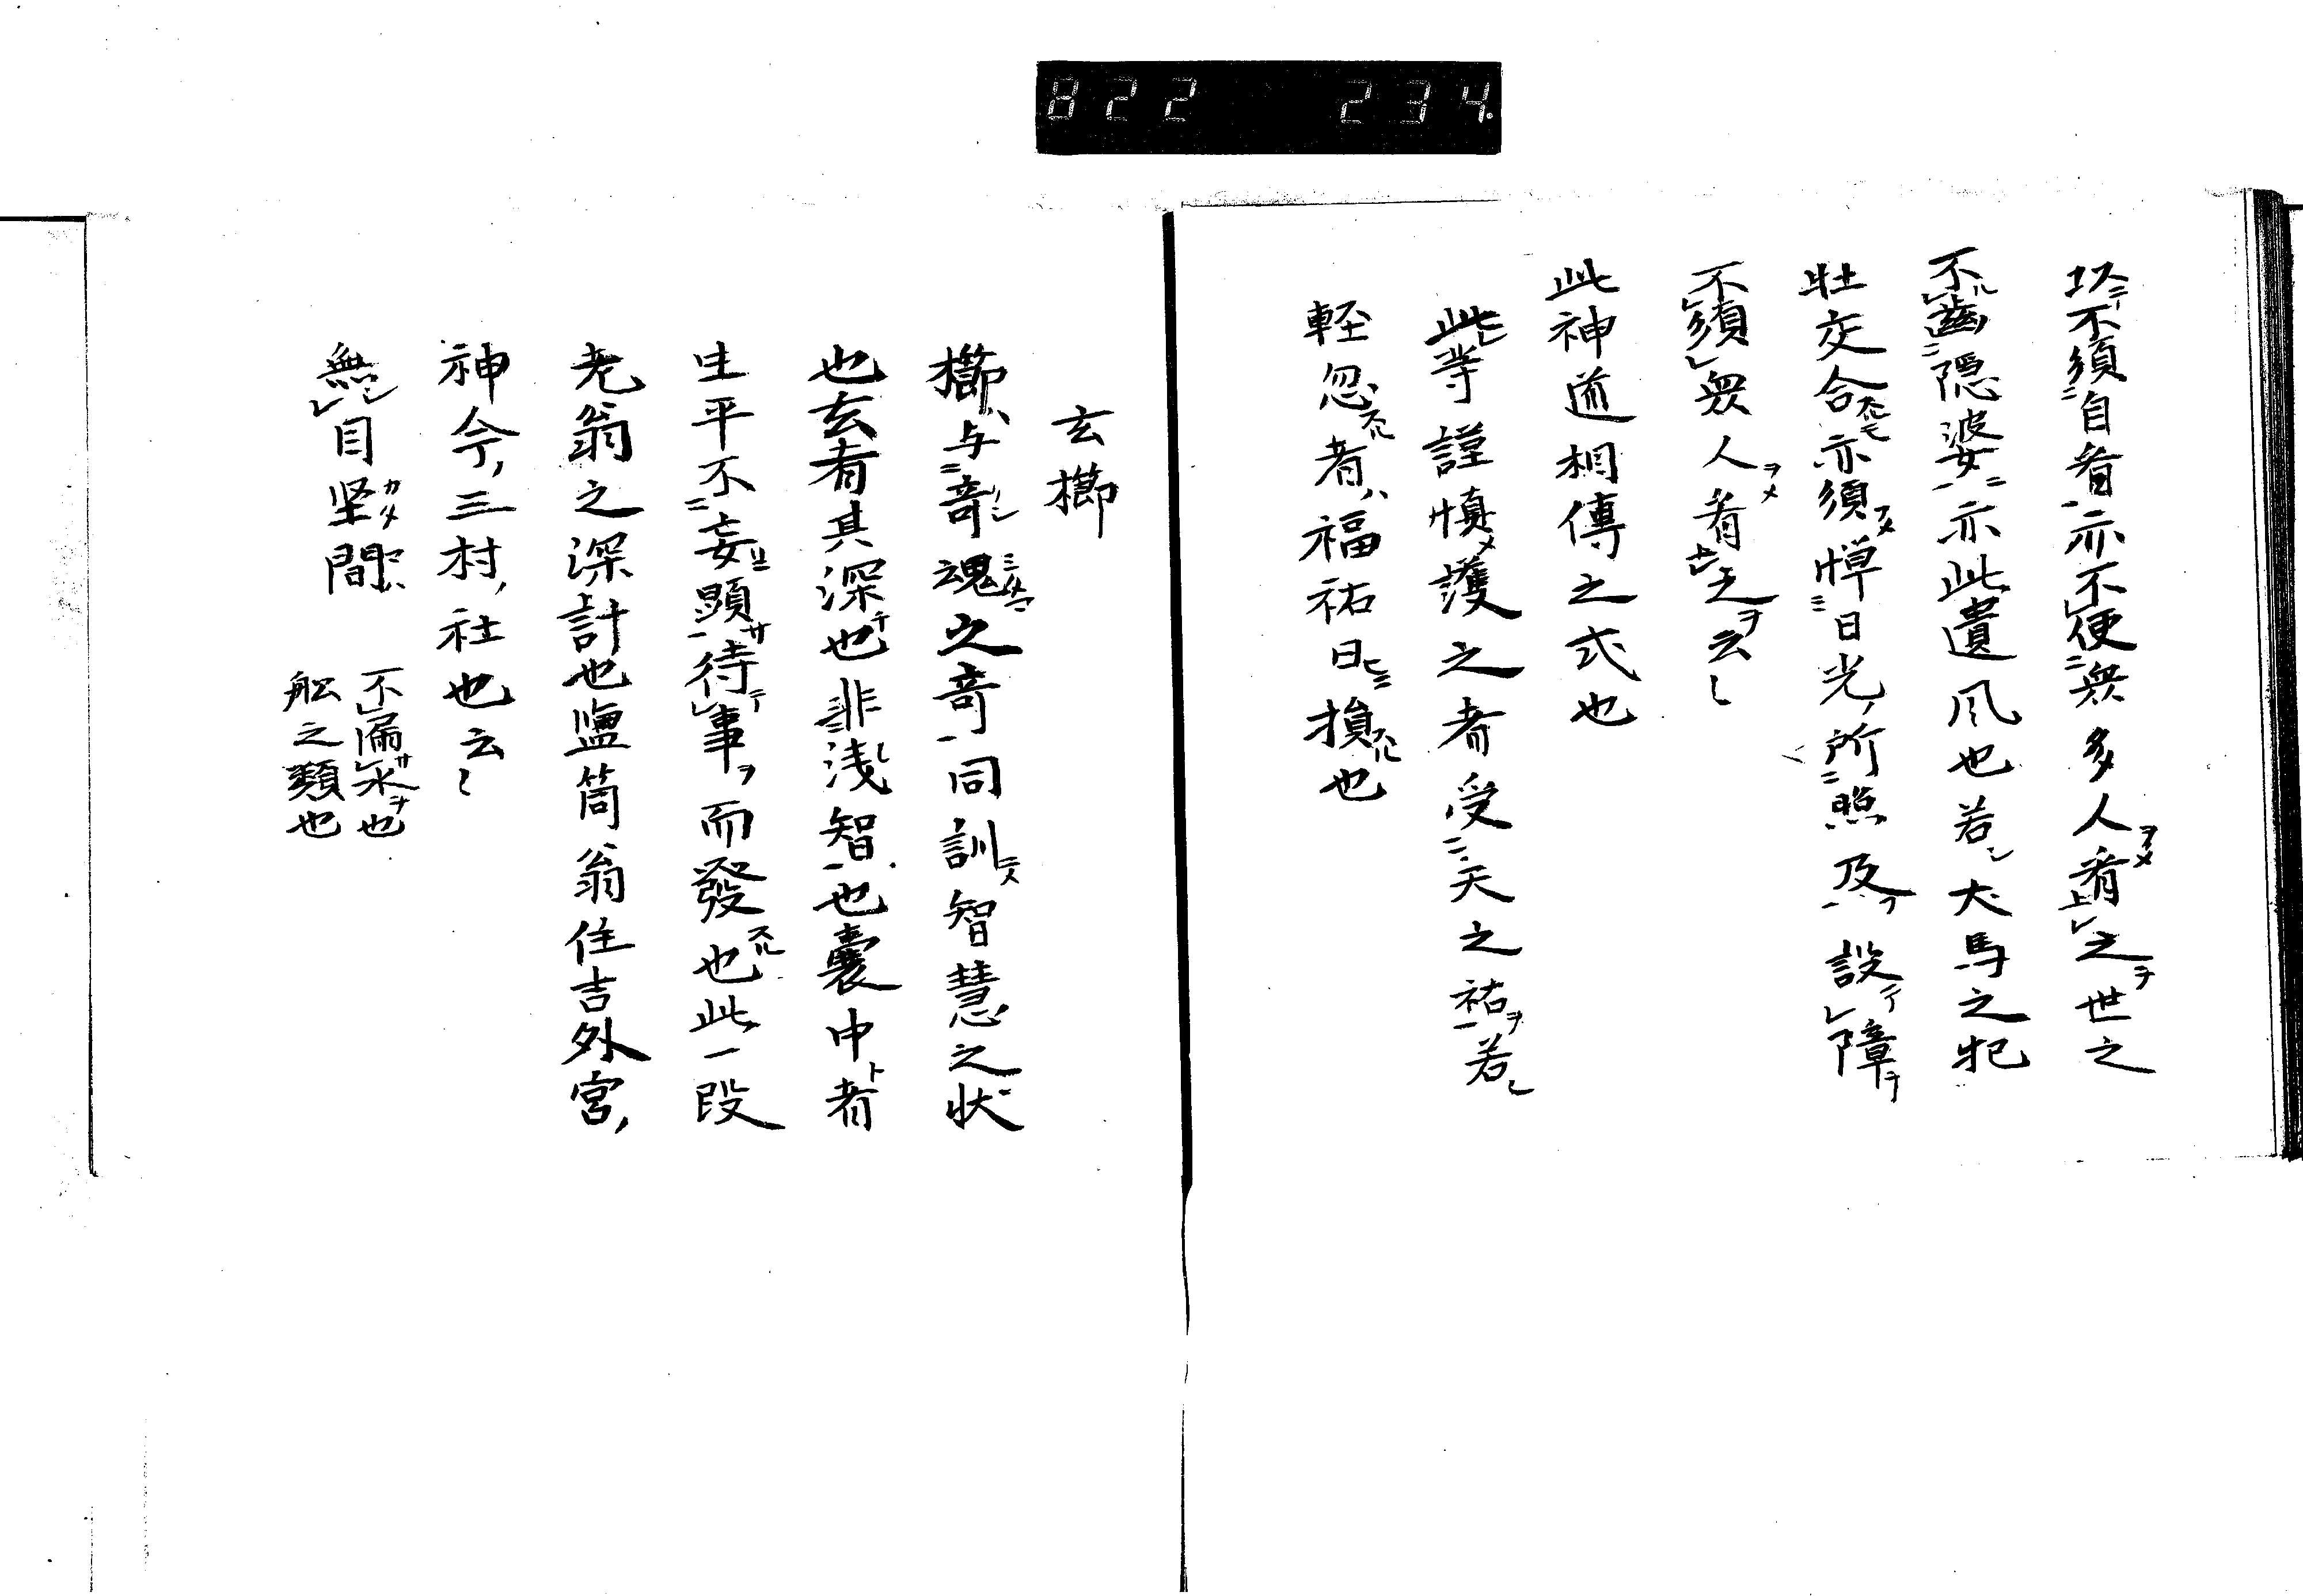 822 234.
以不須自看亦不便衆多人看之世之
不齒隠婆亦此遺風也若犬馬之牝
牡交合亦須憚日光所照及設障
不須衆人看之云〻
此神道相傳之式也
此等謹慎護之者受天之祐若
輕忽者福祐日損也
玄櫛
櫛与竒魂之竒同訓智慧之状
也玄者其深也非浅智也嚢中者
生平不妄顕待事而發也此一段
老翁之深計也塩筒翁住吉外宮
神今三村社也云〻
無目坚間
不漏水也
舩之類也